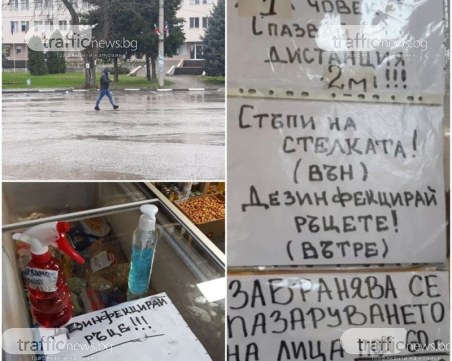 trafficnews.bg
trafficnews.bg
1 ЧОВЕК
СПАЗВ
ДИСТАНЦИЯ
2м!!!
СТЪПИ НА
СТЕЛКАТА!
(ВЪН)
ДЕЗИНФЕКЦИРАЙ
РЪЦЕТЕ!
(ВЪТРЕ)
ДЕЗИНФЕКЦИРАЙ
РЪЦЕ!!!
trafficnews.bg
ЗАБРАНЯВА СЕ
ПАЗАРУВАНЕТО
НА ЛИЦА
trafficnews.bg